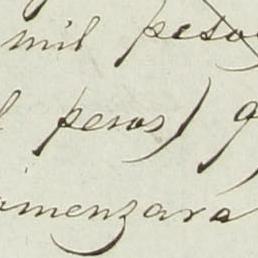 mil pesos
pesos) q
omenzará